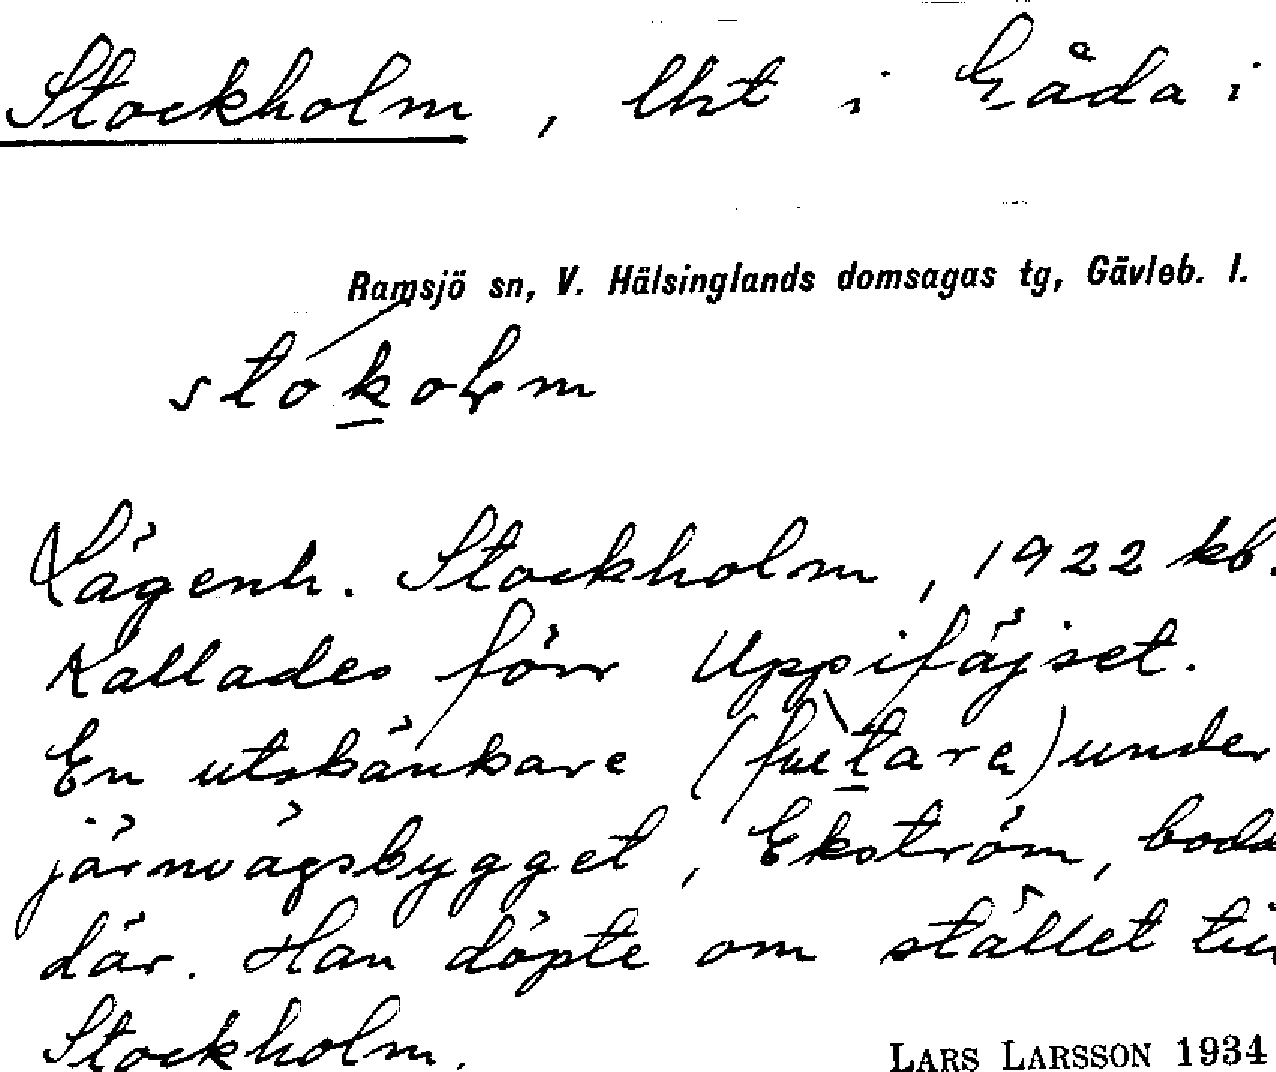 Stockholm, lht i Gåda i
Ramsjö sn, V. Hälsinglands domsagas tg, Gävleb. l.
stokolm
Lägenh. Stockholm, 1922 kb.
Kallades förr Uppifäjset.
En utskänkare (futtare) under
järnvägsbygget, Ekström, bodde
där. Han döpte om stället till
Stockholm.
LARS LARSSON 1934